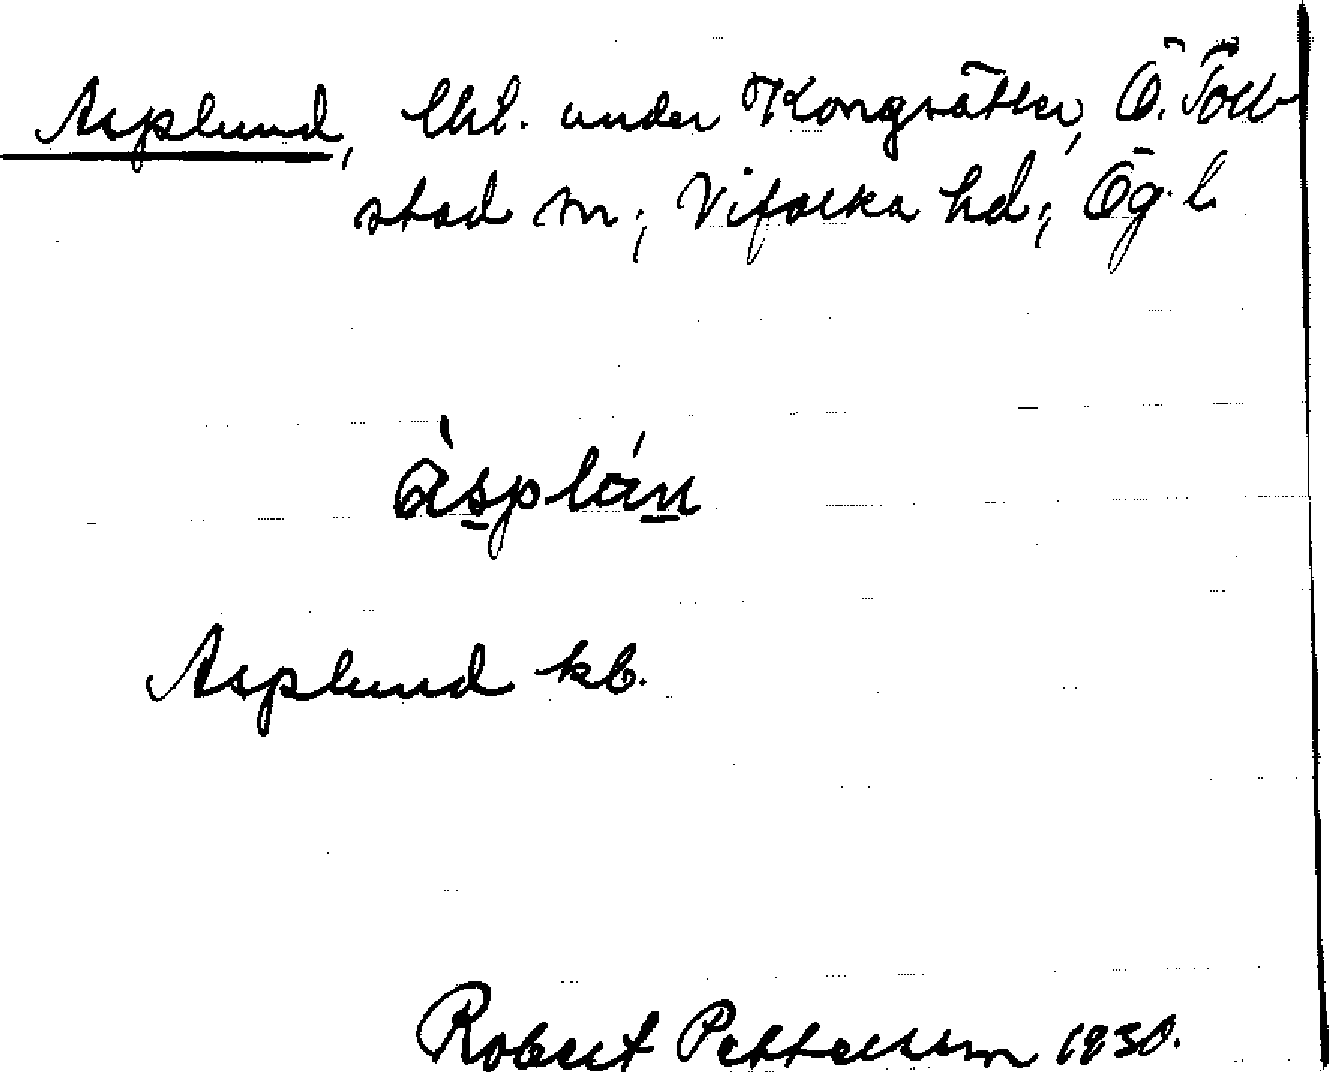 Asplund, lht. under Kongsätter, Ö. Toll-
stad sn; Vifolka hd; Ög. l.
àsplán
Asplund kb.
Robert Pettersson 1930.